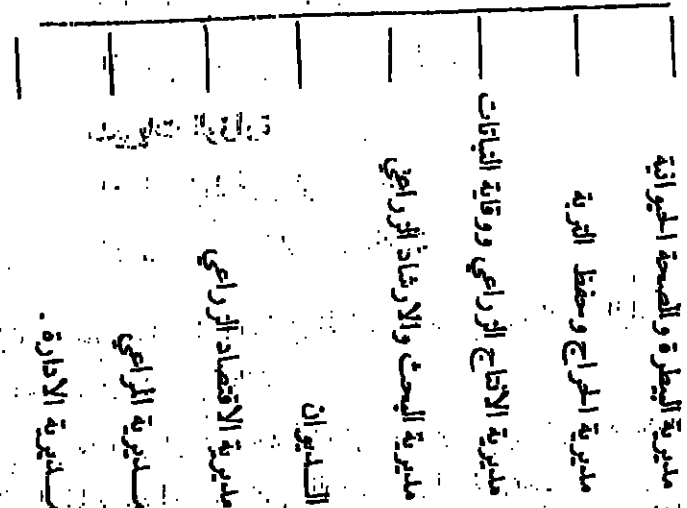 مديرية البيطرة والصحة الحيوانية
مديرية الحراج وحفظ التربة
مديرية الانتاج الزراعي ووقاية النباتات
مديرية البحث والارشاد الزراعي
الــديوان
مديرية الاقتصاد الزراعي
مــديرية المراعي
مــديرية الادارة .